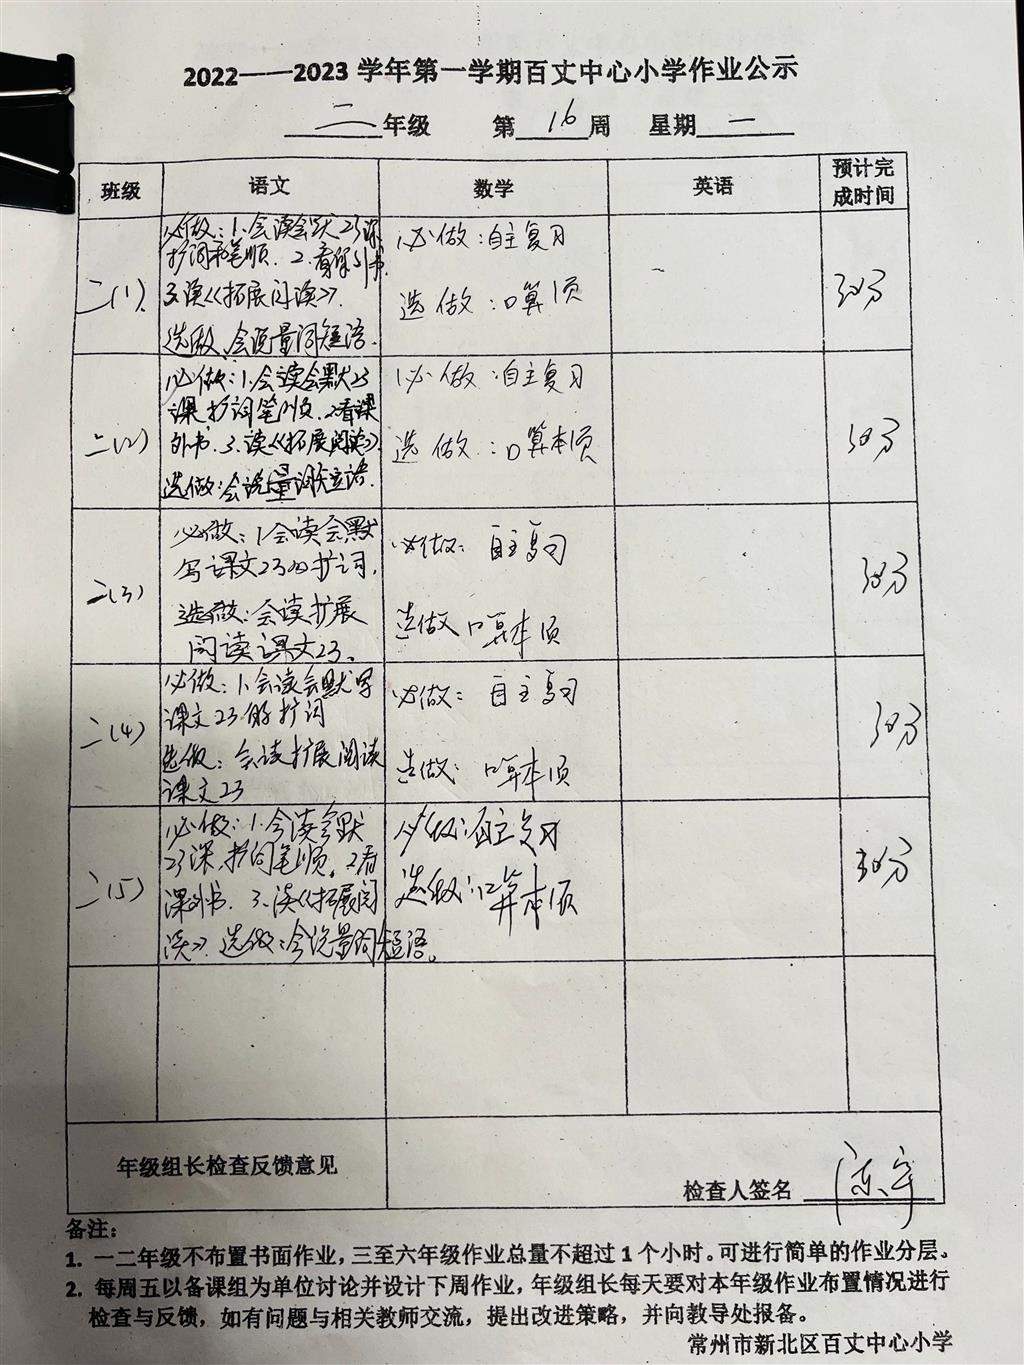 2022——2023 学年第一学期百丈中心小学作业公示
二年级 第16周 星期一
班级 语文 数学 英语 预计完成时间
二(1)
必做：1.会读会默23课
扩词和笔顺. 2.看课外书.
3.读《拓展阅读》.
选做、会说量词短语.
必做：自主复习
选做：口算1页
30分
二(2)
必做：1.会读会默23
课,扩词笔顺.2看课
外书.3.读《拓展阅读》
选做：会说量词短语.
必做：自主复习
选做：口算本1页
30分
二(3)
必做：1会读会默
写课文23的扩词.
选做：会读扩展
阅读课文23、
必做：自主复习
选做 口算本1页
30分
二(4)
必做：1、会读会默写
课文23的扩词
选做：会读扩展阅读
课文23
必做：自主复习
选做：口算本1页
30分
二(5)
必做：1.会读会默
23课,扩词笔顺。2看
课外书. 3、读《拓展阅
读》 选做：会说量词短语。
必做：自主复习
选做：口算本1页
30分
年级组长检查反馈意见
检查人签名 陈宇
备注：
1. 一二年级不布置书面作业，三至六年级作业总量不超过 1 个小时。可进行简单的作业分层。
2. 每周五以备课组为单位讨论并设计下周作业，年级组长每天要对本年级作业布置情况进行
检查与反馈，如有问题与相关教师交流，提出改进策略，并向教导处报备。
常州市新北区百丈中心小学